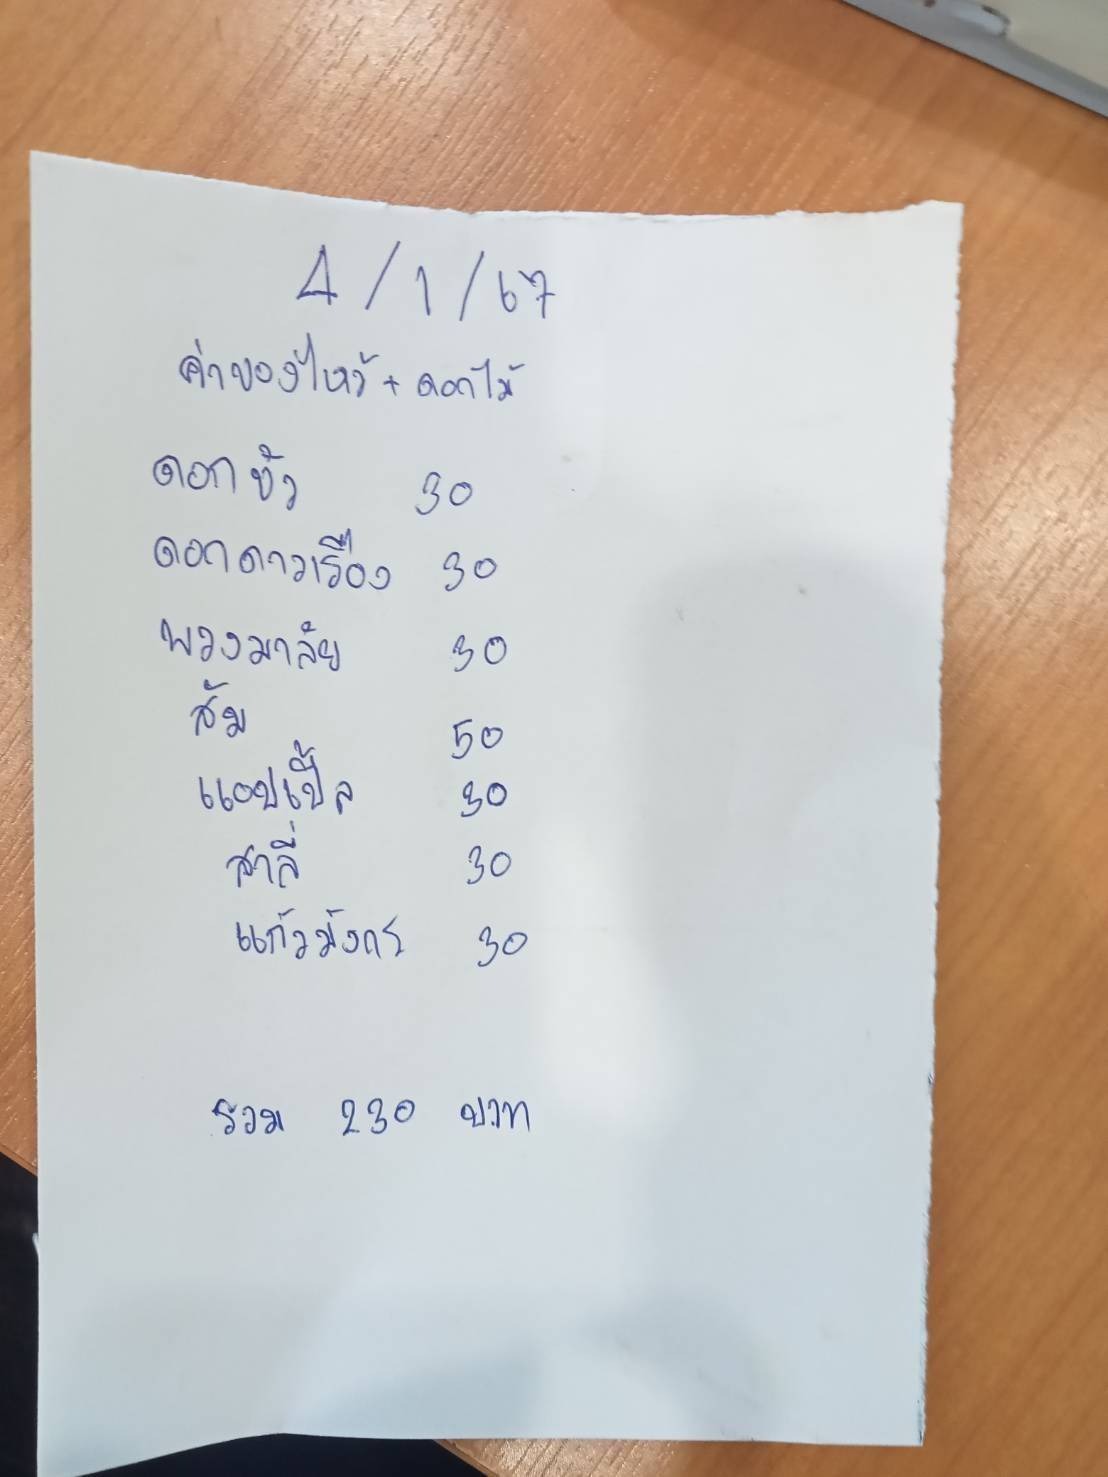 4/1/67
ค่าของไหว้ + ดอกไม้
ดอกบัว 30
ดอกดาวเรือง 30
พวงมาลัย 30
ส้ม 50
แอปเปิ้ล 30
สาลี่ 30
แก้วมังกร 30
รวม 230 บาท